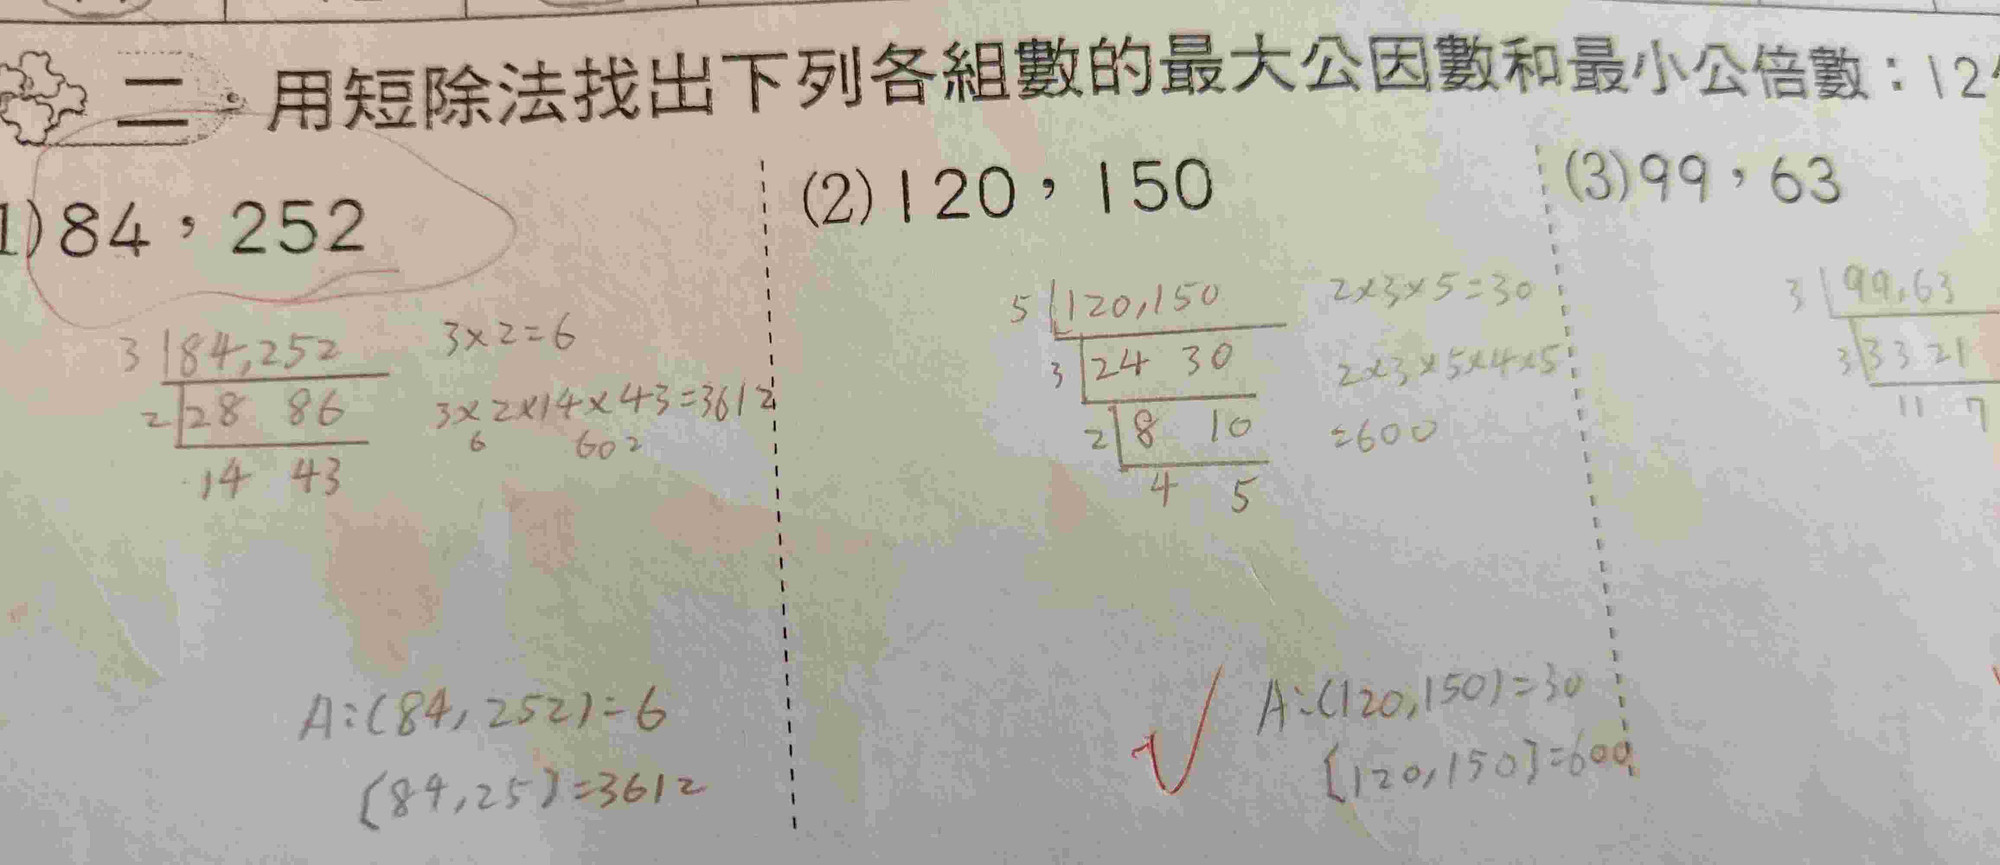 二、用短除法找出下列各組數的最大公因數和最小公倍數：12
1)84，252
3 84,252
2 28 86
14 43
3×2=6
3×2×14×43=3612
6 602
A:(84,252)=6
[84,25]=3612
(2)120，150
5 120,150
3 24 30
2 8 10
4 5
2×3×5=30
2×3×5×4×5
=600
A:(120,150)=30
[120,150]=600
(3)99，63
3 99,63
3 33 21
11 7